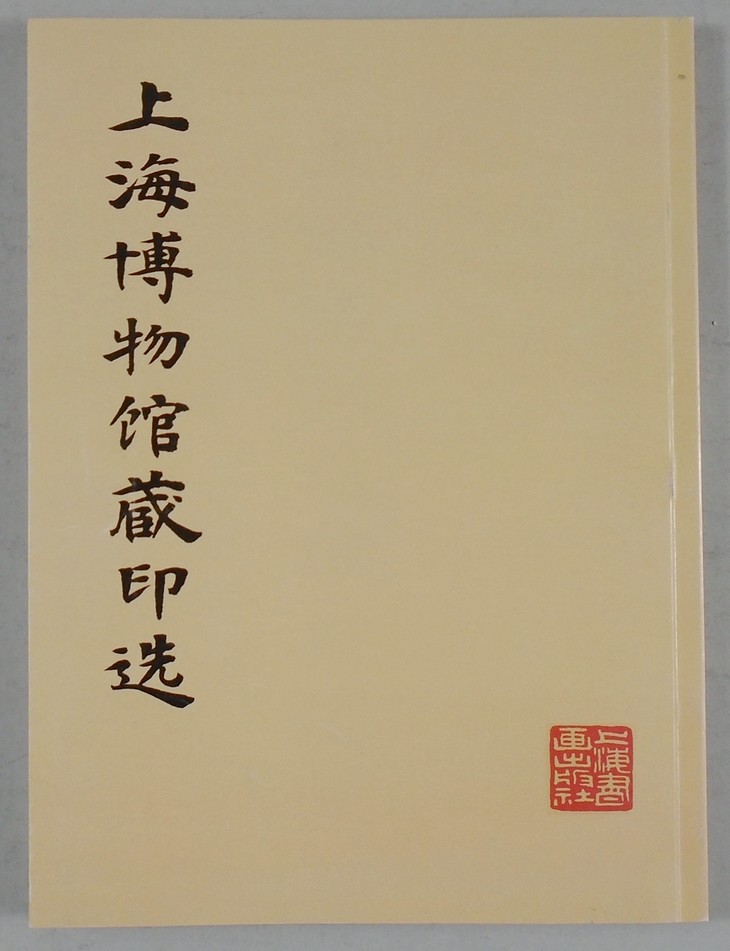 上海博物馆藏印选
上海书
画出版社